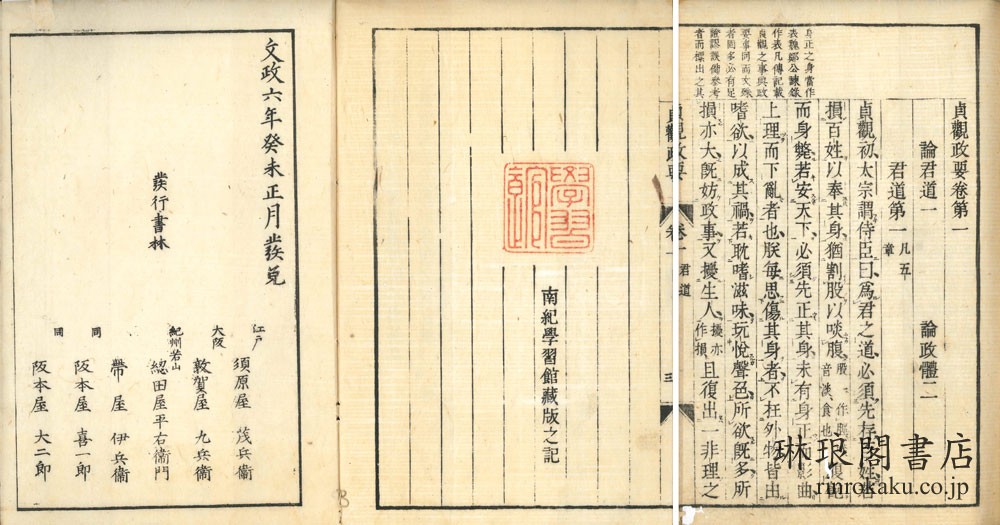 身正之身當作
表魏鄭公諫錄
作表凡傳記載
貞觀之事與政
要事同而文殊
者固多必有足
證謬誤備參考
者而標出之其
貞觀政要卷第一
論君道一　論政體二
君道第一 凡五章
貞觀初太宗謂侍臣曰爲君之道必須先存百姓若
損百姓以奉其身猶割股以啖腹
而身斃若安天下必須先正其身未有身正而影曲
上理而下亂者也朕每思傷其身者不在外物皆由
嗜欲以成其禍若耽嗜滋味玩悅聲色所欲既多所
損亦大既妨政事又擾生人 擾亦作損 且復出一非理之
貞觀政要　卷一　君道　三
學習館印
南紀學習館藏版之記
文政六年癸未正月發兌
發行書林
江戸　須原屋茂兵衞
大阪　敦賀屋九兵衞
紀州若山　綛田屋平右衞門
同　帶屋伊兵衞
同　阪本屋喜一郎
同　阪本屋大二郎
琳琅閣書店
rinrokaku.co.jp